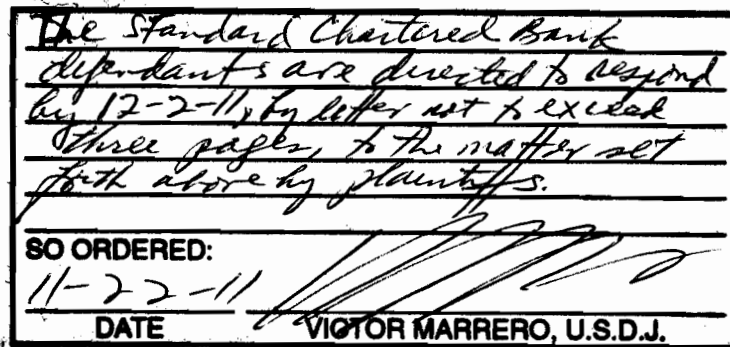 The Standard Chartered Bank
defendants are directed to respond
by 12-2-11, by letter not to exceed
three pages, to the matter set
forth above by plaintiffs.
SO ORDERED:
11-22-11
DATE VICTOR MARRERO, U.S.D.J.